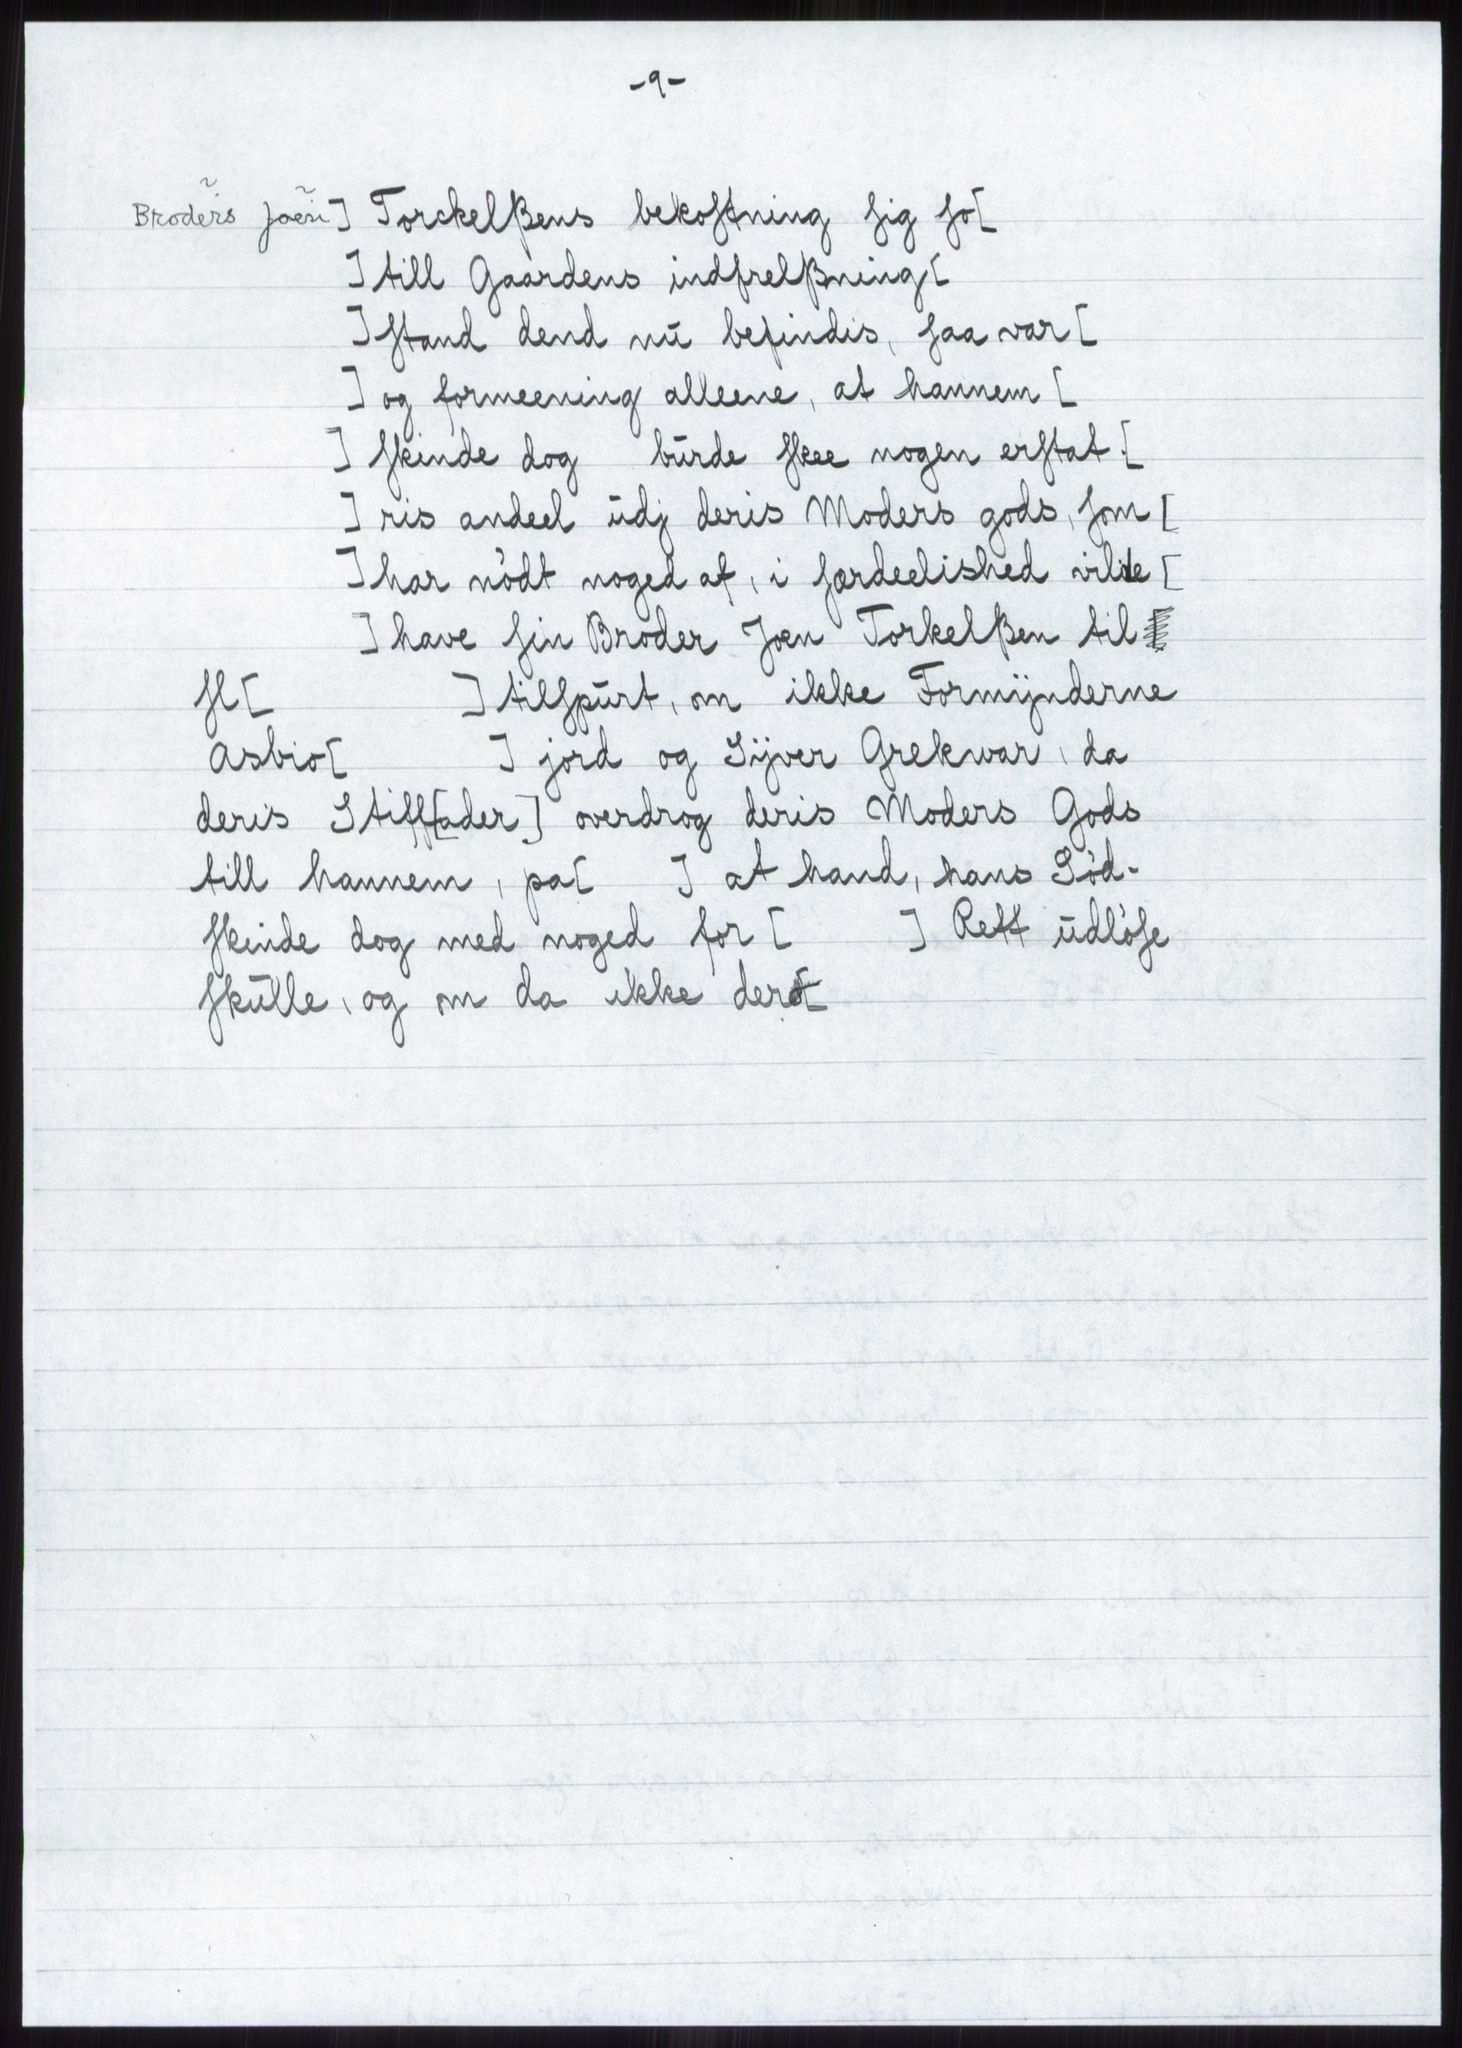 -9-
Broders Joen] Torckelßens bekostning sig so[
] till Gaardens indfrelßning[
] stand dend nu befindis, saa var [
] og formeening alleene, at hannem [
] skinde dog burde skee nogen erstat [
] ris andeel udj deris Moders gods, som [
] har nödt noged af, i særdeelished vilde [
] have sin Broder Joen Torkelßen til
sl[ ] tilspurt, om ikke Formÿnderne
Asbio[ ] jord og Sÿver Grekwar, da
deris Stiff[ader] overdrog deris Moders Gods
till hannem, pa[ ] at hand, hans Sød-
skinde dog med noged for [ ] Rett udløse
skulle, og om da ikke der[